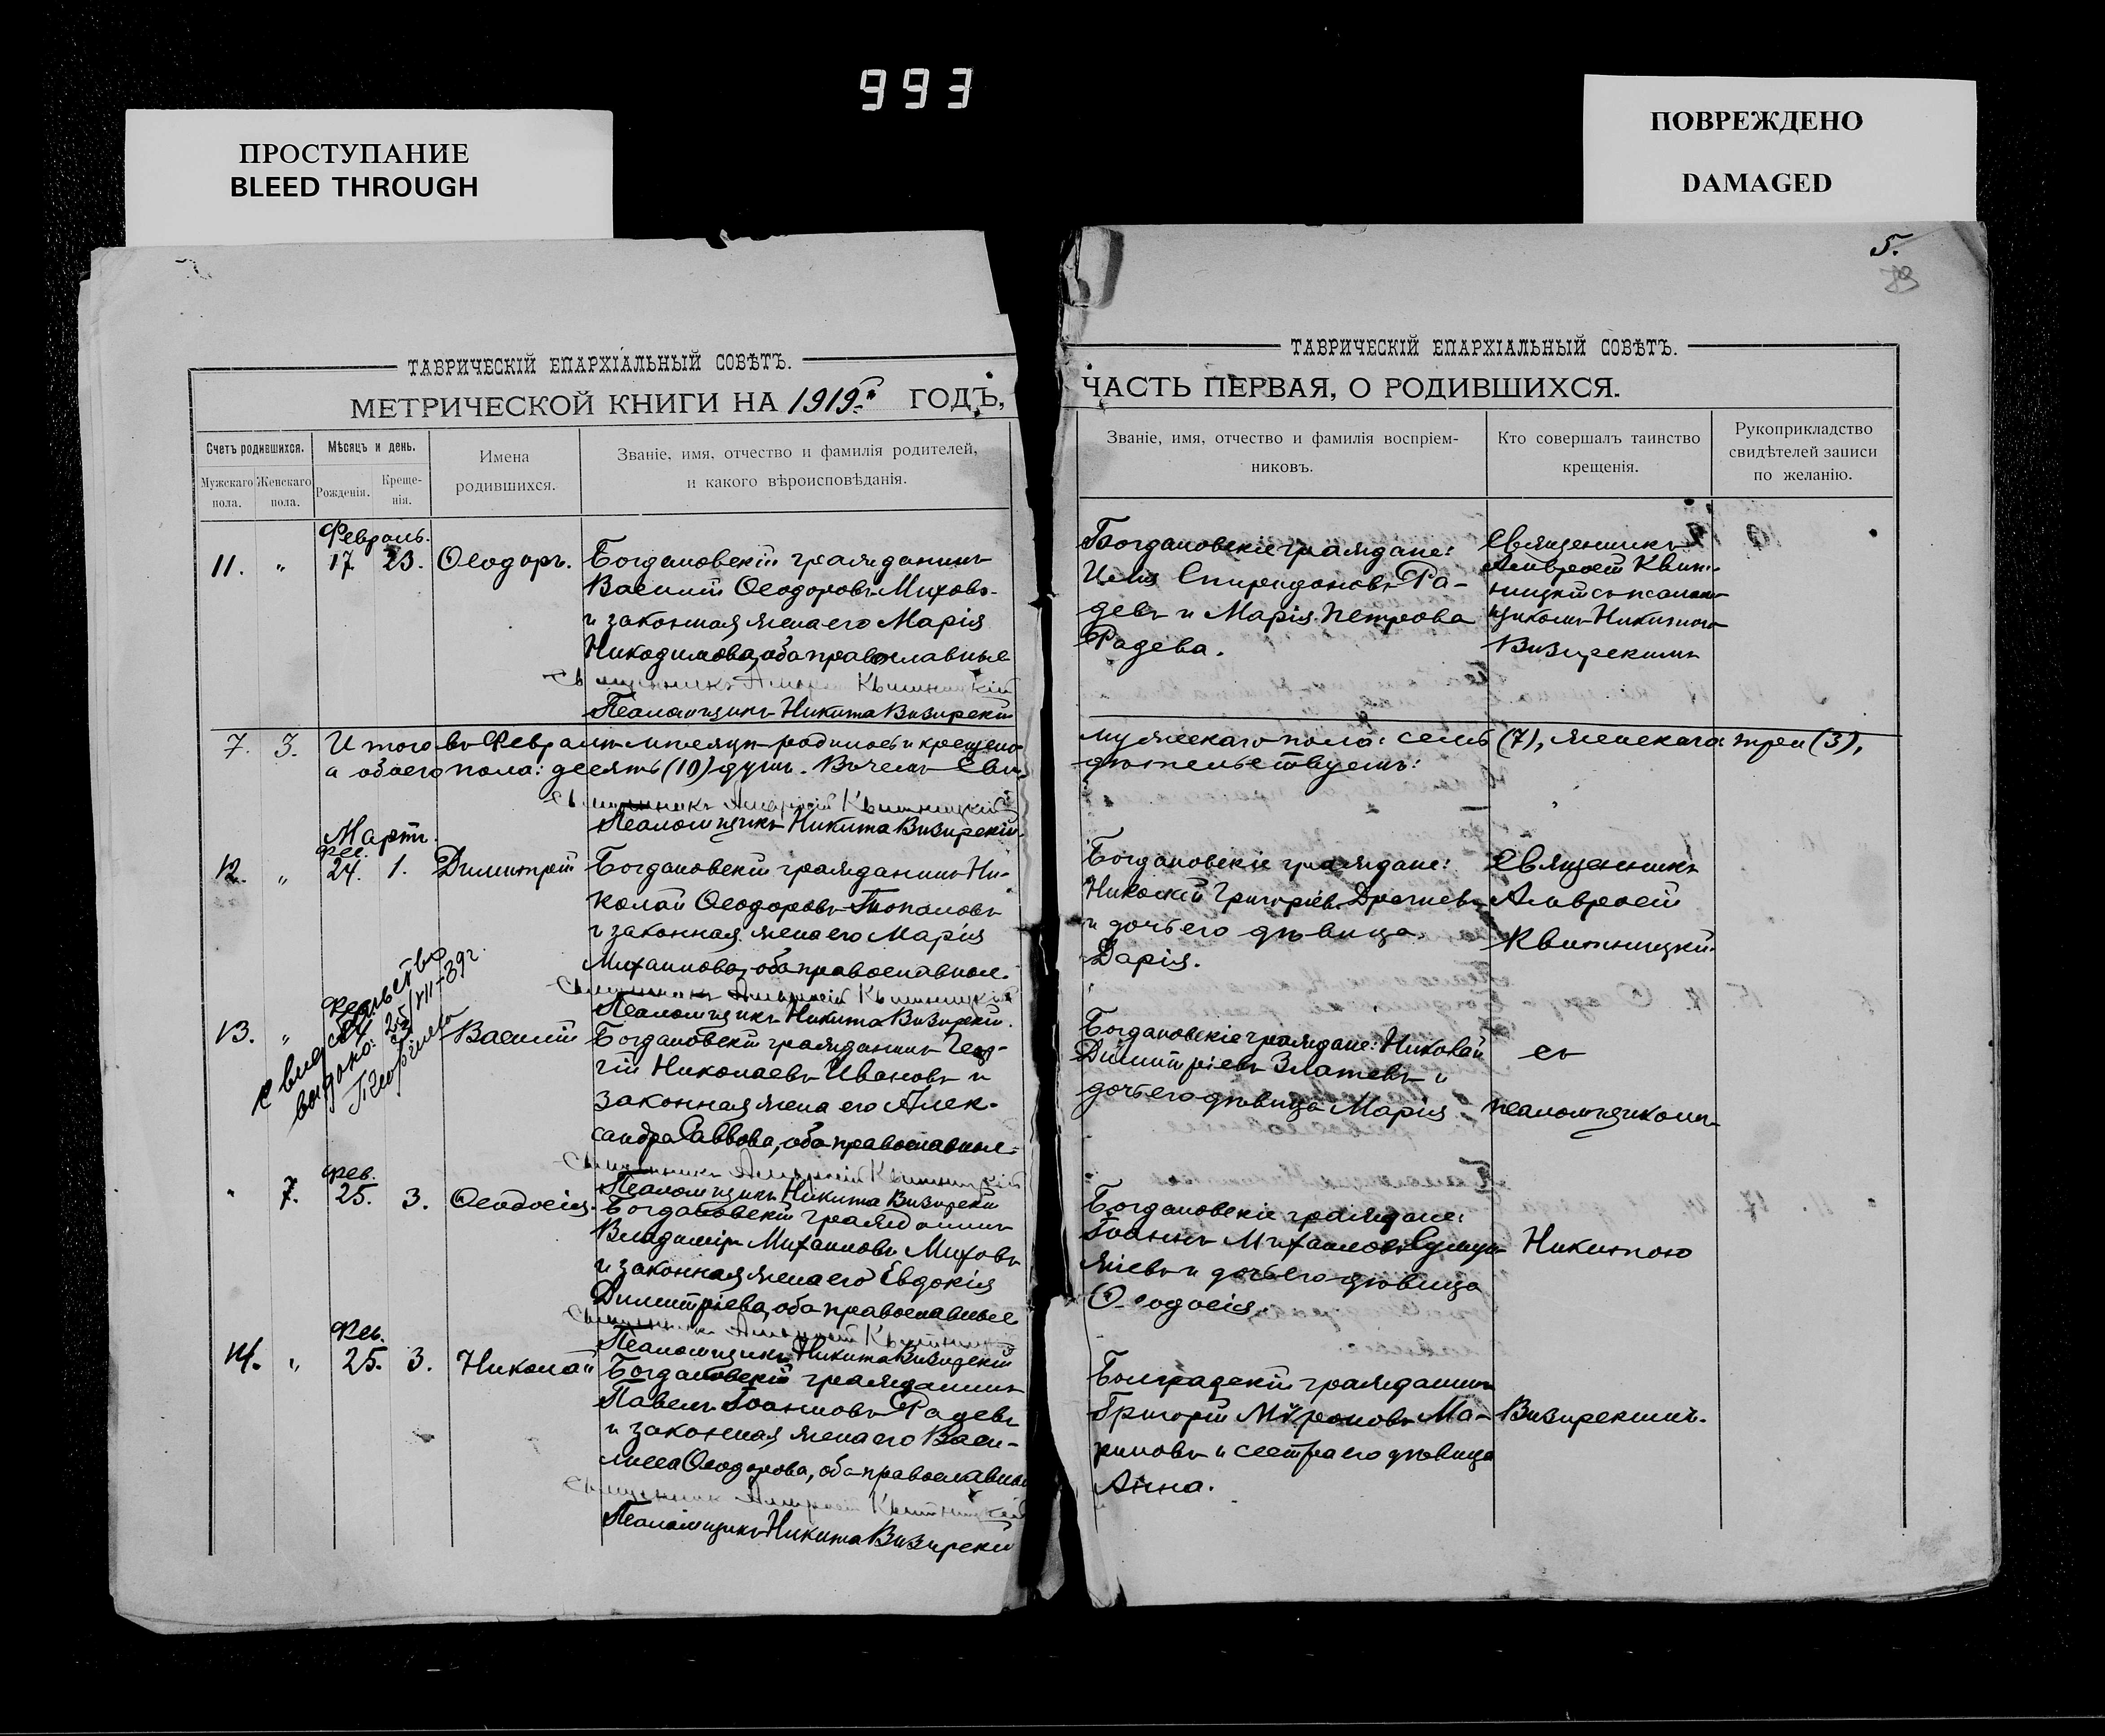 993
ПРОСТУПАНИЕ
BLEED THROUGH
ПОВРЕЖДЕНО
DAMAGED
5.
ТАВРИЧЕСКІЙ ЕПАРХІАЛЬНЫЙ СОВѢТЪ.
МЕТРИЧЕСКОЙ КНИГИ НА 1919 ГОДЪ,
Счетъ родившихся.
Мужскаго пола.
Женскаго пола.
Мѣсяцъ и день.
Рожденія.
Креще-
нія.
Имена
родившихся.
Званіе, имя, отчество и фамилія родителей,
и какого вѣроисповѣданія.
Февраль.
11. " 17 23. Ѳеодоръ.
Богдановскій гражданинъ
Василій Ѳеодоровъ Миховъ
и законная жена его Марія
Никодимова, оба православные
Священникъ Амвросій Квитницкій
Псаломщикъ Никита Визирскій
7. 3. Итого въ Февралѣ мѣсяцѣ родилось и крещено
а обоего пола: десять (10) душъ. Въ чемъ сви-
Священникъ Амвросій Квитницкій
Псаломщикъ Никита Визирскій
Мартъ.
Фев.
12. " 24. 1. Димитрій
Богдановскій гражданинъ Ни-
колай Ѳеодоровъ Топаловъ
и законная жена его Марія
Михаилова, оба православные.
Священникъ Амвросій Квитницкій
Псаломщикъ Никита Визирскій.
Свидѣтельство
выдано: 25/VII-39г.
13. " Василій
Богдановскій гражданинъ Геор-
гій Николаевъ Ивановъ и
законная жена его Алек-
сандра Саввова, оба православные.
Священникъ Амвросій Квитницкій
Псаломщикъ Никита Визирскій
Фев.
" 7. 25. 3. Ѳеодосія.
Богдановскій гражданинъ
Владиміръ Михаиловъ Миховъ
и законная жена его Евдокія
Димитріева, оба православные
Священникъ Амвросій Квитницкій
Псаломщикъ Никита Визирскій
Фев.
14. " 25. 3. Николай
Богдановскій гражданинъ
Павелъ Іоанновъ Радевъ
и законная жена его Васи-
лисса Ѳеодорова, оба православные
Священникъ Амвросій Квитницкій
Псаломщикъ Никита Визирскій
ТАВРИЧЕСКІЙ ЕПАРХІАЛЬНЫЙ СОВѢТЪ.
ЧАСТЬ ПЕРВАЯ, О РОДИВШИХСЯ.
Званіе, имя, отчество и фамилія воспріем-
никовъ.
Кто совершалъ таинство
крещенія.
Рукоприкладство
свидѣтелей записи
по желанію.
Богдановскіе граждане:
Илія Спиридоновъ Ра-
девъ и Марія Петрова
Радева.
Священникъ
Амвросій Квит-
ницкій съ псалом-
щикомъ Никитою
Визирскимъ
мужескаго пола: семь (7), женскаго три (3),
дѣтельствуемъ:
Богдановскіе граждане:
Николай Григоріевъ Драгневъ
и дочь его дѣвица
Дарія.
Священникъ
Амвросій
Квитницкій
Богдановскіе граждане: Николай
Димитріевъ Златевъ и
дочь его дѣвица Марія
съ
псаломщикомъ
Богдановскіе граждане:
Іоаннъ Михаиловъ
и дочь его дѣвица
Ѳеодосія.
Никитою
Болградскій гражданинъ
Григорій Мѵроновъ Ма-
риновъ и сестра его дѣвица
Анна.
Визирскимъ.